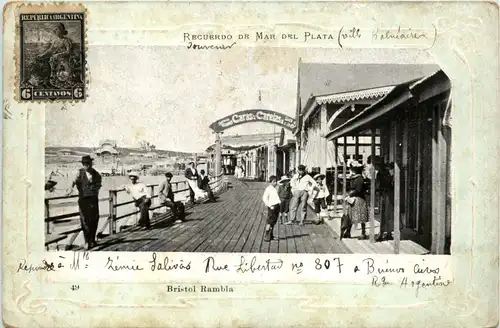 REPUBLICA ARGENTINA
6 CENTAVOS 6
RECUERDO DE MAR DEL PLATA (ville Balnéaire)
Souvenir
Caras y Caretas
à Mlle Zémie Salivas Rue Libertad no 807 à Buénos aires
Rép Argentine
49 Bristol Rambla